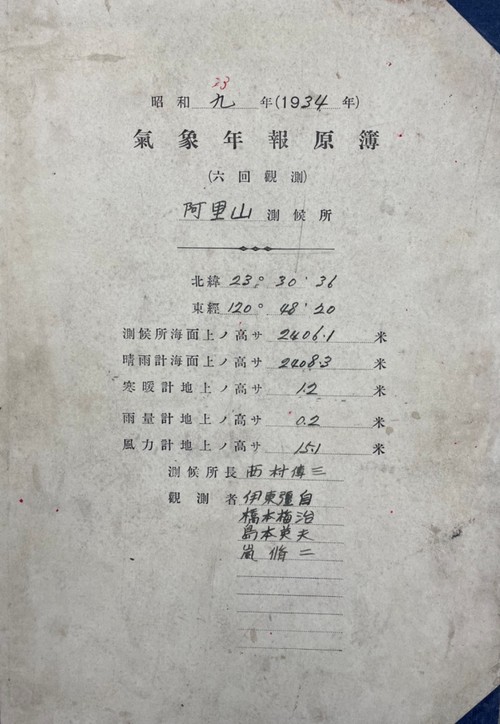 23
昭和九年(1934年)
氣象年報原簿
(六回觀測)
阿里山測候所
北緯 23° 30' 36
東經 120° 48' 20
測候所海面上ノ高サ 2406.1 米
晴雨計海面上ノ高サ 2408.3 米
寒暖計地上ノ高サ 1.2 米
雨量計地上ノ高サ 0.2 米
風力計地上ノ高サ 15.1 米
測候所長 西村傳三
觀測者 伊東彊自
橋本梅治
島本英夫
嵐脩二